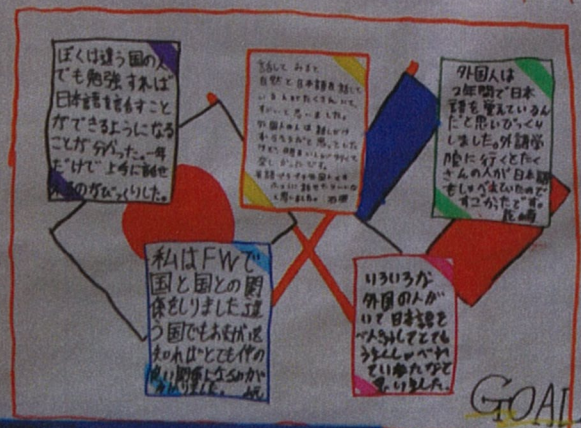 ぼくは違う国の人
でも勉強すれば
日本語を話すこと
ができるようになる
ことが分かった。一年
だけで上手に話せ
るのがびっくりした。
話して みると
自然と日本語を話して
いる人がたくさんいて、
すごいと思いました。
外国人の人は話しかけ
外国人は
2年間で日本
語を覚えているん
だと思いびっくり
しました。外語学
院に行くとたく
さんの人が日本語
をしゃべっていたので
すごかったです。
私はFWで
国と国との関
係をしりました。違
う国でもおたがい
知ればとても仲の
良い関係になるのが
いろいろな
外国の人が
いて日本語を
べんきょうしてとても
うまくしゃべれ
ていたなと
思いました。
GOAL